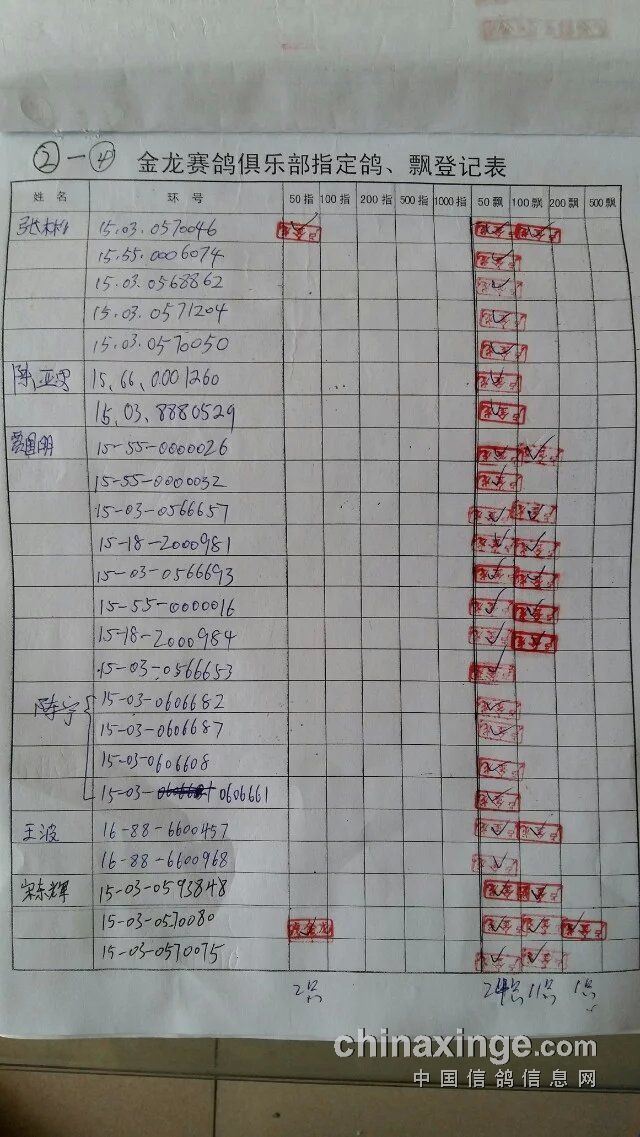 ②一④ 金龙赛鸽俱乐部指定鸽、飘登记表
姓名 环号 50指 100指 200指 500指 1000指 50飘 100飘 200飘 500飘
15.03.0570046
15.55.0006074
15.03.0568862
15.03.0571204
15.03.0570050
15.66.0001260
15.03.8880529
国明 15-55-0000026
15-55-0000032
15-03-0566657
15-18-2000981
15-03-0566693
15-55-0000016
15-18-2000984
15-03-0566653
陈宁 15-03-0606682
15-03-0606687
15-03-0606608
15-03-0606661
王波 16-88-6600457
16-88-6600968
宋东辉 15-03-0593848
15-03-0570080
15-03-0570075
2只 24只 11只 1只
chinaxinge.com
中国信鸽信息网